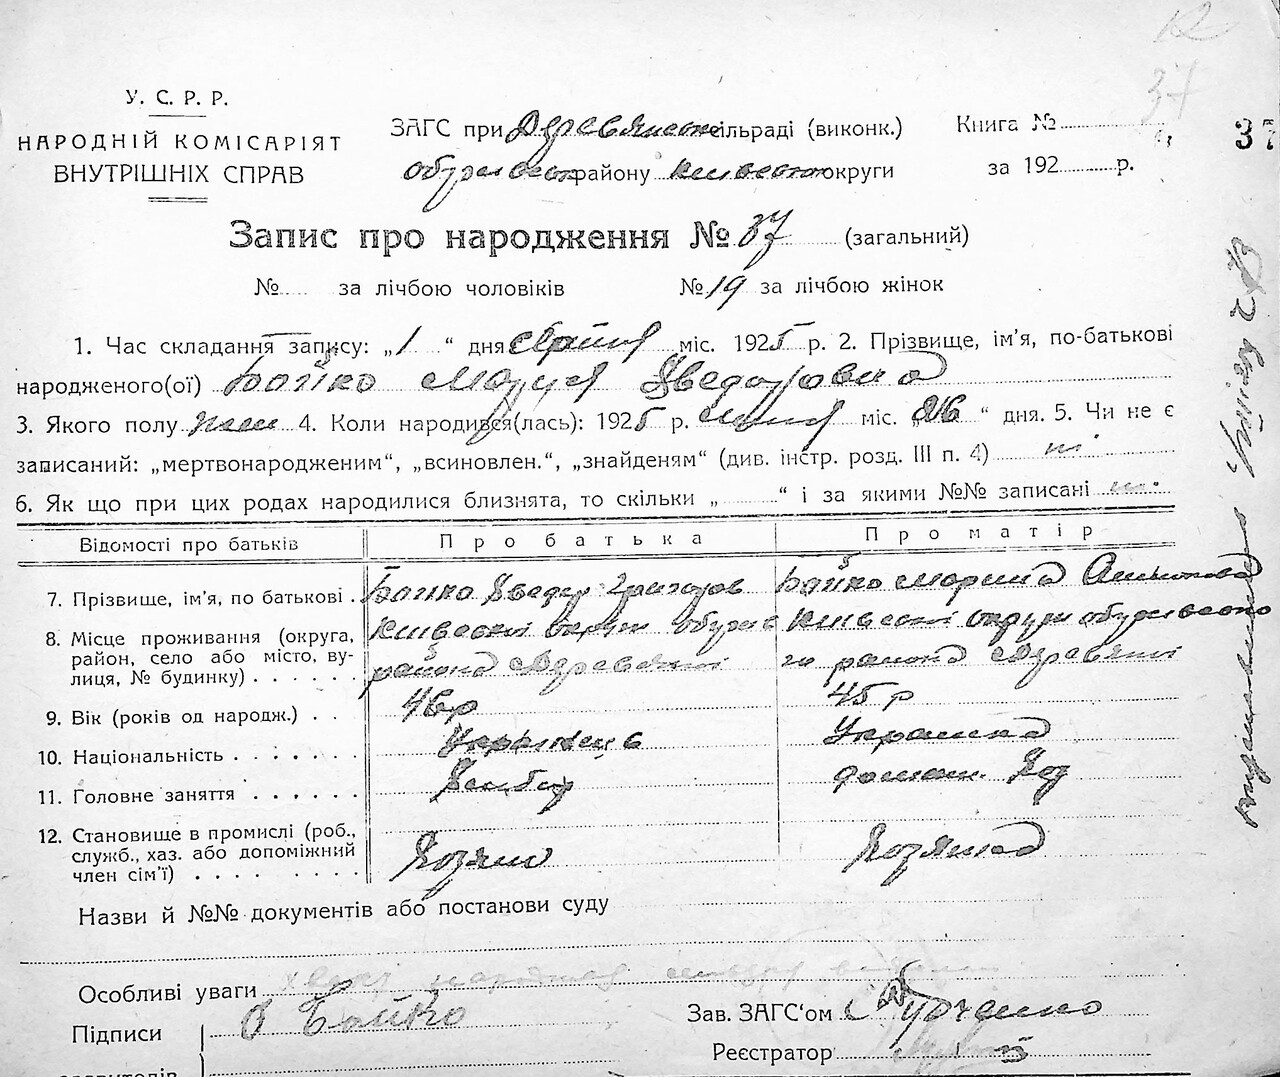 37
У. С. Р. Р.
НАРОДНІЙ КОМІСАРІЯТ
ВНУТРІШНІХ СПРАВ
ЗАГС при Деревянско сільраді (виконк.)
Книга №
37
району округи
за 192 р.
Запис про народження № 37 (загальний)
№ за лічбою чоловіків № 19 за лічбою жінок
1. Час складання запису: „1“ дня міс. 1925 р. 2. Прізвище, ім'я, по-батькові
народженого(ої) Бойко Маруся Хведоровна
3. Якого полу жен 4. Коли народився(лась): 1925 р. міс. „26“ дня. 5. Чи не є
записаний: „мертвонародженим“, „всиновлен.“, „знайденям“ (див. інстр. розд. III п. 4) ні
6. Як що при цих родах народилися близнята, то скільки „ “ і за якими №№ записані ні
Відомості про батьків Про батька Про матір
7. Прізвище, ім'я, по батькові . Бойко Хведор Григоров Бойко Марина
8. Місце проживання (округа,
район, село або місто, ву-
лиця, № будинку) . . . . . .
Київскої округи
района Деревяні
Київскої округи
го района Деревяні
9. Вік (років од народж.) . . 46р 45 р
10. Національність . . . . . . . Українець Украинка
11. Головне заняття . . . . . . Хлебор домаш. Хоз
12. Становище в промислі (роб.,
служб., хаз. або допоміжний
член сім'ї) . . . . . . . . .
Хозяин Хозяйка
Назви й №№ документів або постанови суду
Особливі уваги
Підписи Бойко
Зав. ЗАГС'ом
Реєстратор